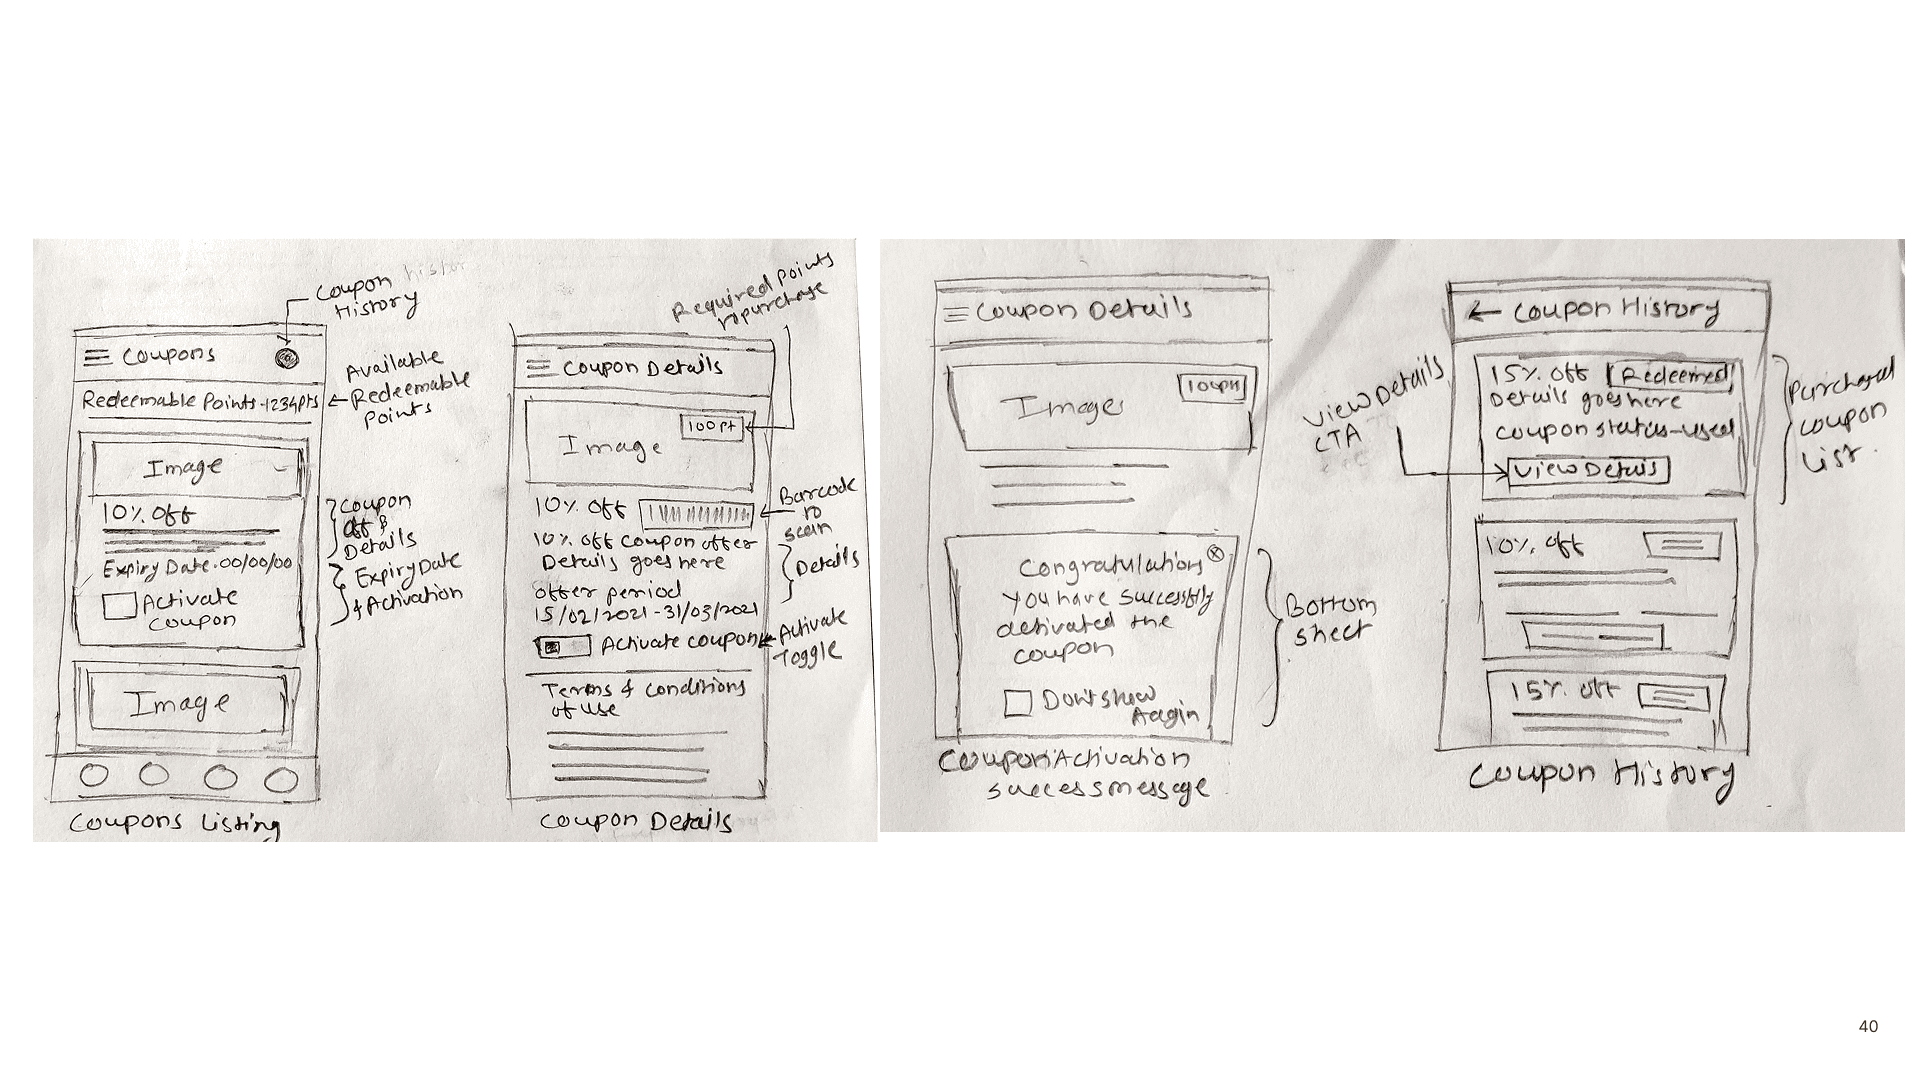 Coupon
History
Coupons
Available
Redeemable
Points
Redeemable Points-1234pts
Image
10% off
Expiry Date.00/00/00
Activate
coupon
Coupon
off &
Details
Expiry Date
& Activation
Image
Coupons Listing
Required points
to purchase
Coupon Details
100pt
Image
10% off
Barcode
to
scan
10% off coupon offer
Details goes here
Details
offer period
15/02/2021-31/03/2021
Activate coupon
Activate
Toggle
Terms & conditions
of use
Coupon Details
Coupon Details
100pt
Images
Congratulations
You have successflly
activated the
coupon
Dont show
Aagin
Bottom
sheet
Coupon Activation
success message
Coupon History
View Details
CTA
15% off
Redeemed
Details goes here
coupon status-used
View Details
Purchased
coupon
List.
10% off
15% off
Coupon History
40